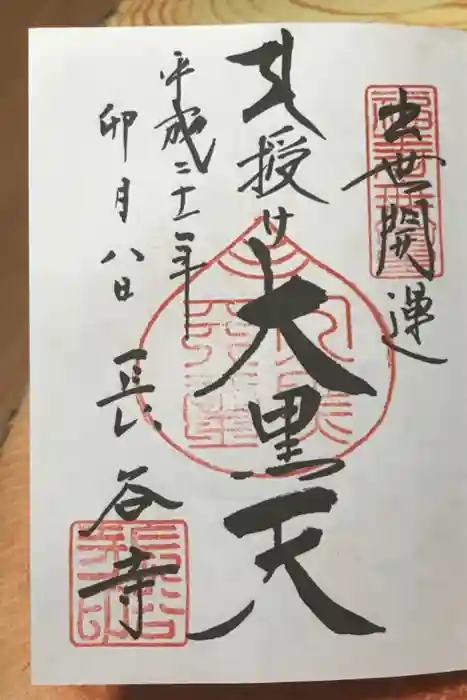 出世開運
授け大黒天
平成二十一年
卯月八日
長谷寺